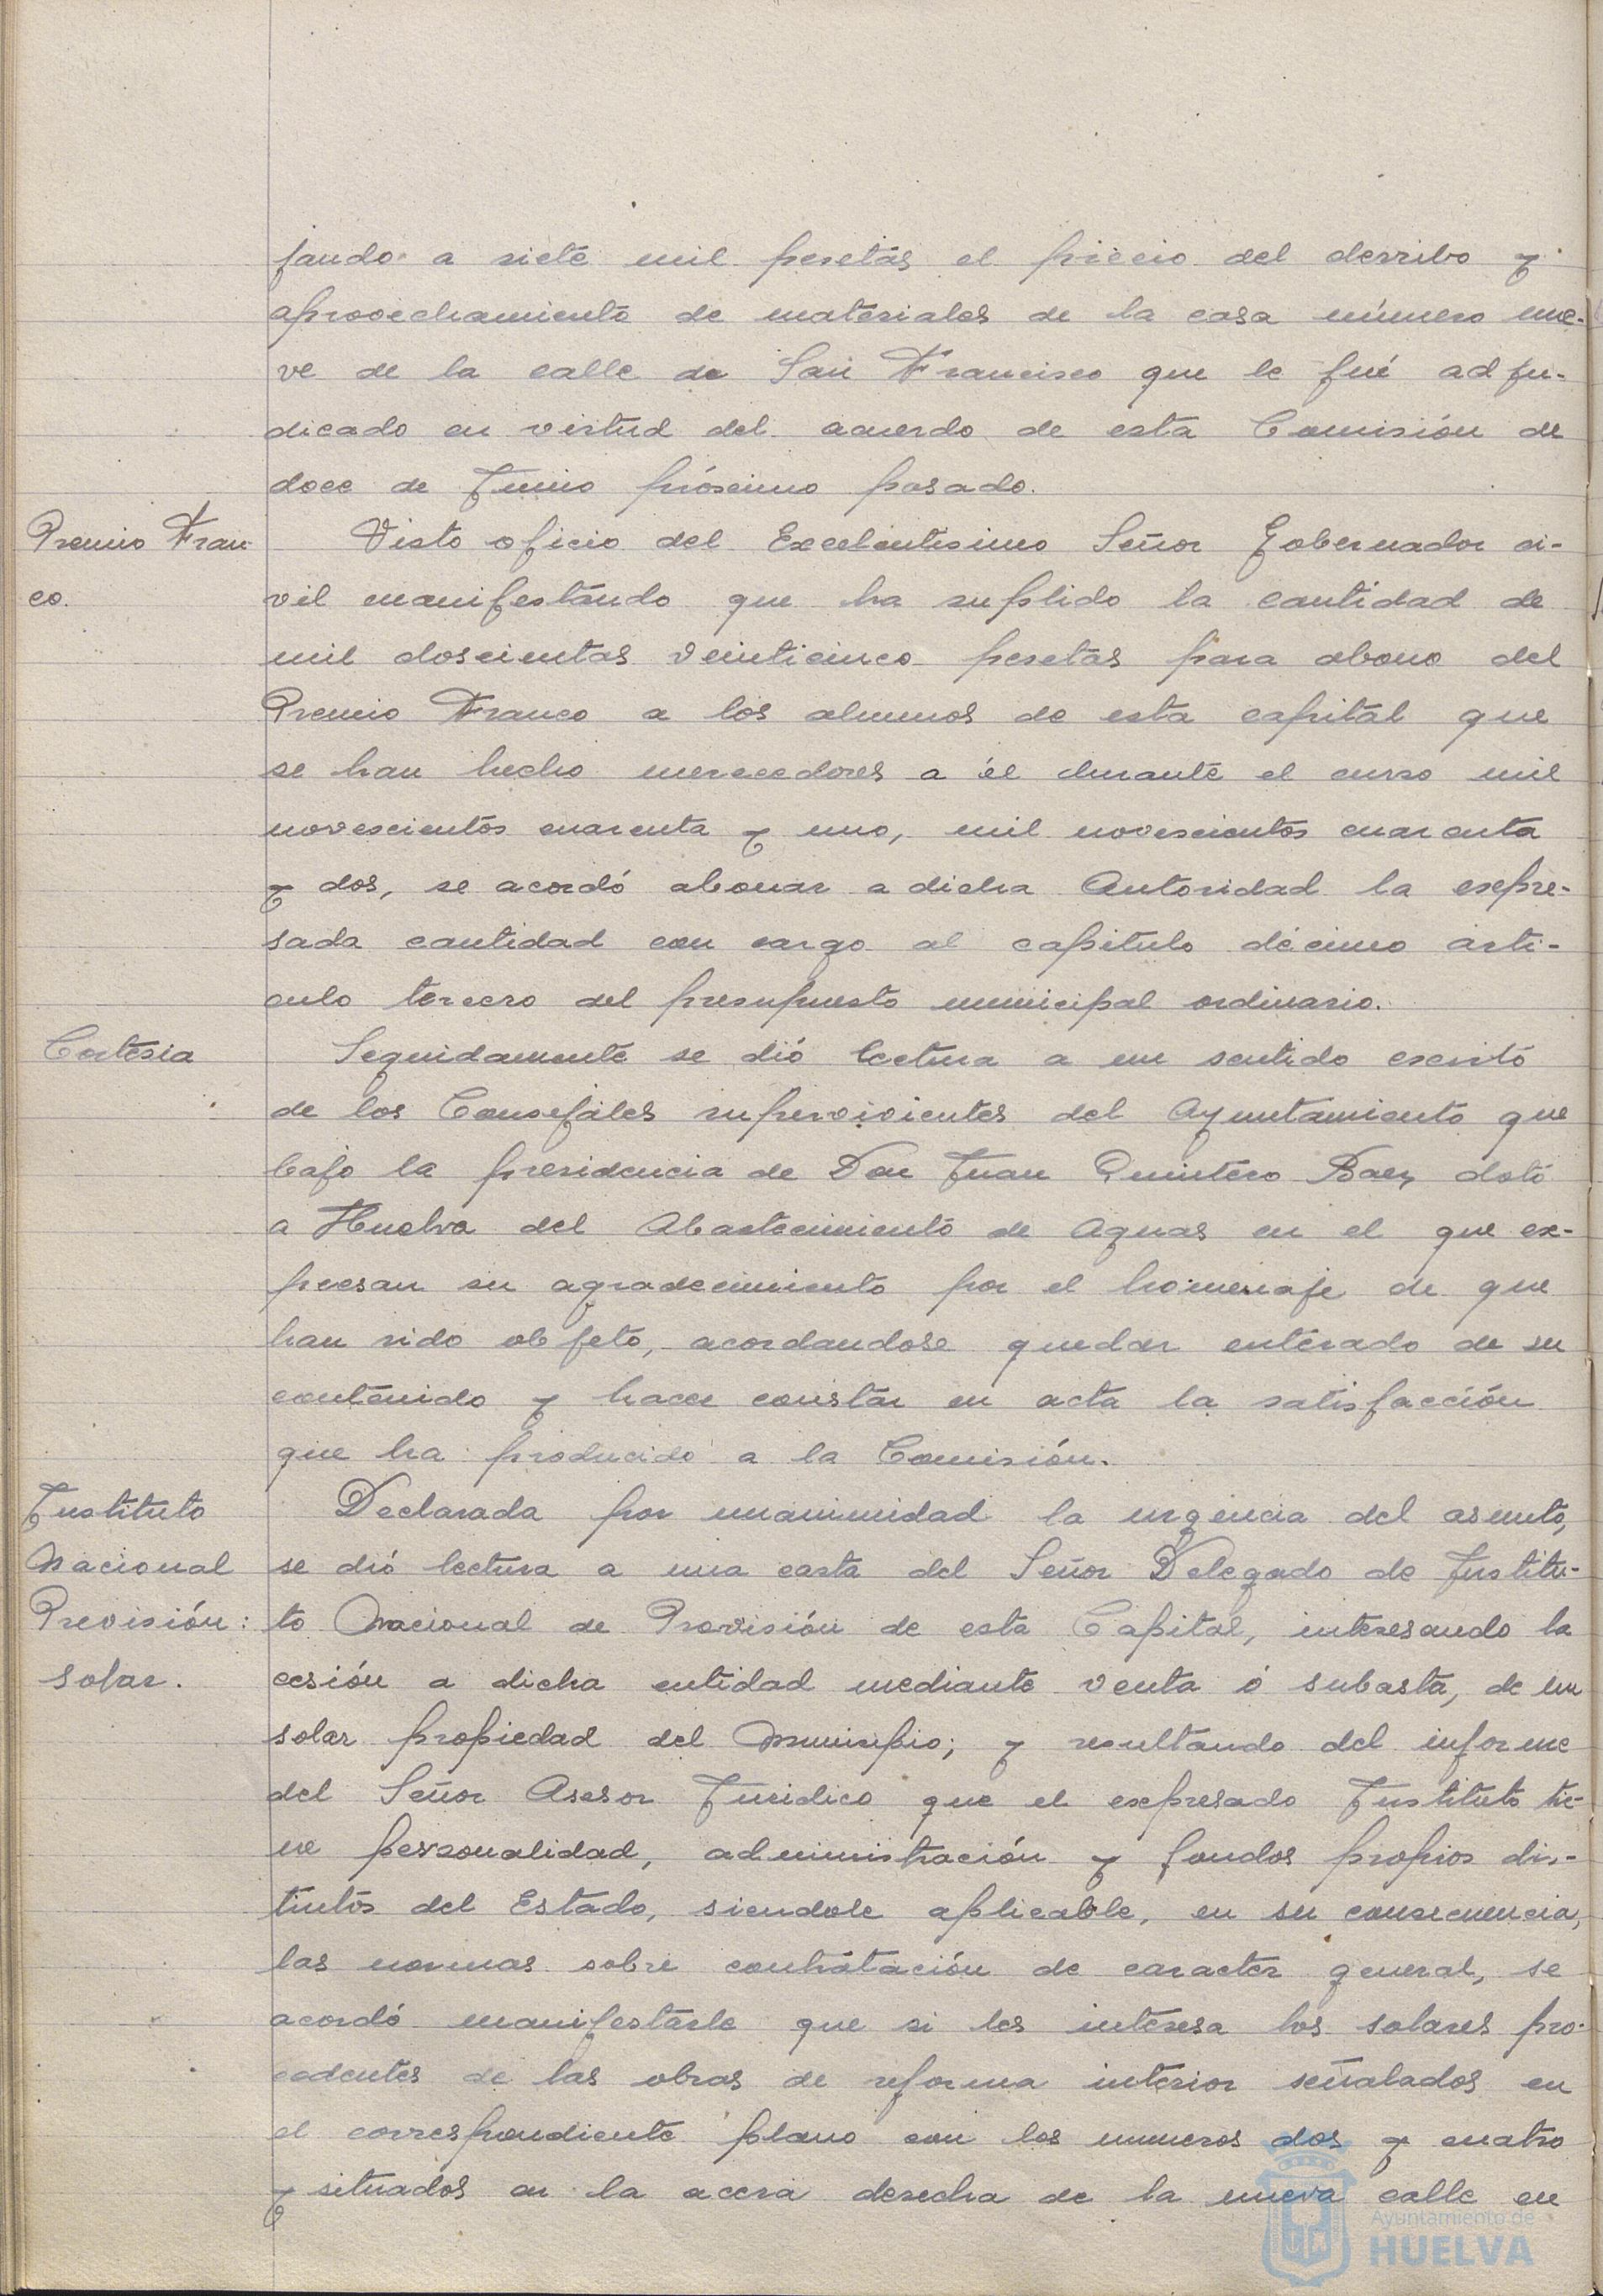 jando a siete mil pesetas el precio del derribo y
aprovechamiento de materiales de la casa número nue-
ve de la calle de San Francisco que le fué adju-
dicado en virtud del acuerdo de esta Comisión de
doce de Junio próximo pasado.
Premio Fran
co.
Visto oficio del Excelentisimo Señor Gobernador ci-
vil manifestando que ha suplido la cantidad de
mil doscientas veinticinco pesetas para abono del
Premio Franco a los alumnos de esta capital que
se han hecho merecedores a él durante el curso mil
novescientos cuarenta y uno, mil novescientos cuarenta
y dos, se acordó abonar a dicha Autoridad la expre-
sada cantidad con cargo al capitulo décimo arti-
culo tercero del presupuesto municipal ordinario.
Cortesia
Seguidamente se dió lectura a un sentido escrito
de los Concejales supervivientes del Ayuntamiento que
bajo la presidencia de Don Juan Quintero Baez dotó
a Huelva del Abastecimiento de Aguas en el que ex-
presan su agradecimiento por el homenaje de que
han sido objeto, acordandose quedar enterado de su
contenido y hacer constar en acta la satisfacción
que ha producido a la Comisión.
Instituto
Nacional
Previsión:
solar.
Declarada por unanimidad la urgencia del asunto,
se dió lectura a una carta del Señor Delegado de Institu-
to Nacional de Provisión de esta Capital, interesando la
cesión a dicha entidad mediante venta ó subasta, de un
solar propiedad del Municipio; y resultando del informe
del Señor Asesor Juridico que el expresado Instituto tie-
ne personalidad, administración y fondos propios dis-
tintos del Estado, siendole aplicable, en su consecuencia,
las normas sobre contratación de caracter general, se
acordó manifestarle que si les interesa los solares pro-
cedentes de las obras de reforma interior señalados en
el correspondiente plano con los numeros dos y cuatro
y situados en la acera derecha de la nueva calle en
Ayuntamiento de
HUELVA